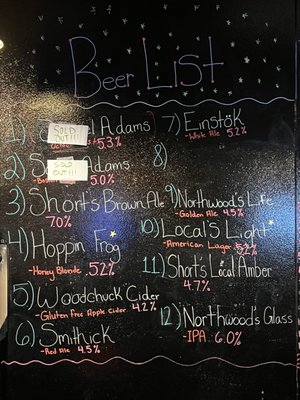 Beer List
1) SOLD OUT!!! Adams
5.3%
2) SOLD OUT!!! Adams
5.0%
3) Short's Brown Ale
7.0%
4) Hoppin Frog
-Honey Blonde 5.2%
5) Woodchuck Cider
-Gluten Free Apple Cider 4.2%
6) Smithick
-Red Ale 4.5%
7) Einstök
-White Ale 5.2%
8)
9) Northwood's Life
-Golden Ale 4.5%
10) Local's Light
-American Lager 5.2%
11) Short's Local Amber
4.7%
12) Northwood's Glass
-IPA 6.0%